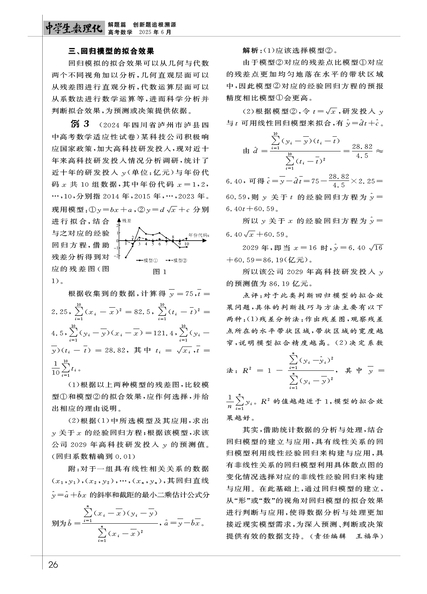 中学生数理化
解题篇 创新题追根溯源
高考数学 2025年6月
三、回归模型的拟合效果
回归模拟的拟合效果可以从几何与代数
两个不同视角加以分析,几何直观层面可以
从残差图进行直观分析,代数运算层面可以
从系数法进行数学运算等,进而科学分析并
判断拟合效果,为预测或决策提供依据。
例3 (2024年四川省泸州市泸县四
中高考数学适应性试卷)某科技公司积极响
应国家政策,加大高科技研发投入,现对近十
年来高科技研发投入情况分析调研,统计了
近十年的研发投入y(单位:亿元)与年份代
码x共10组数据,其中年份代码x=1,2,
…,10,分别指2014年,2015年,…,2023年。
现用模型:①y=bx+a,②y=d√x+c分别
进行拟合,结合
与之对应的经验
回归方程,借助
残差分析得到对
应的残差图(图
1)。
残差
年份代码x
模型① 模型②
图1
根据收集到的数据,计算得 y̅=75,t̅=
2.25,∑(i=1→10)(xᵢ-x̅)²=82.5,∑(i=1→10)(tᵢ-t̅)²=
4.5,∑(i=1→10)(yᵢ-y̅)(xᵢ-x̅)=121.4,∑(i=1→10)(yᵢ-
y̅)(tᵢ-t̅)=28.82,其中tᵢ=√xᵢ,t̅=
1/10 ∑(i=1→10)tᵢ。
(1)根据以上两种模型的残差图,比较模
型①和模型②的拟合效果,应作何选择,并给
出相应的理由说明。
(2)根据(1)中所选模型及其应用,求出
y关于x的经验回归方程;根据该模型,求该
公司2029年高科技研发投入y的预测值。
(回归系数精确到0.01)
附:对于一组具有线性相关关系的数据
(x₁,y₁),(x₂,y₂),…,(xₙ,yₙ),其回归直线
ŷ=â+b̂x的斜率和截距的最小二乘估计公式分
别为b̂=∑(i=1→n)(xᵢ-x̅)(yᵢ-y̅)/∑(i=1→n)(xᵢ-x̅)²,â=y̅-b̂x̅。
解析:(1)应该选择模型②。
由于模型②对应的残差点比模型①对应
的残差点更加均匀地落在水平的带状区域
中,因此模型②对应的经验回归方程的预报
精度相比模型①会更高。
(2)根据模型②,令t=√x,研发投入y
与t可用线性回归模型来拟合,有ŷ=d̂t+ĉ。
由d̂=∑(i=1→10)(yᵢ-y̅)(tᵢ-t̅)/∑(i=1→10)(tᵢ-t̅)²=28.82/4.5≈
6.40,可得ĉ=y̅-d̂t̅=75-28.82/4.5×2.25=
60.59,则y关于t的经验回归方程为ŷ=
6.40t+60.59。
所以y关于x的经验回归方程为ŷ=
6.40√x+60.59。
2029年,即当x=16时,ŷ=6.40√16
+60.59=86.19(亿元)。
所以该公司2029年高科技研发投入y
的预测值为86.19亿元。
点评:对于此类判断回归模型的拟合效
果问题,具体的判断技巧与方法主要有以下
两种:(1)残差分析法:作出残差图,观察残差
点所在的水平带状区域,带状区域的宽度越
窄,说明模型拟合精度越高。(2)决定系数
法:R²=1-∑(i=1→n)(yᵢ-ŷᵢ)²/∑(i=1→n)(yᵢ-y̅)²,其中y̅=
1/n ∑(i=1→n)yᵢ。R²的值越趋近于1,模型的拟合效
果越好。
其实,借助统计数据的分析与处理,结合
回归模型的建立与应用,具有线性关系的回
归模型利用线性经验回归来构建与应用,具
有非线性关系的回归模型利用具体散点图的
变化情况选择对应的非线性经验回归来构建
与应用。在此基础上,通过回归模型的建立,
从“形”或“数”的视角对回归模型的拟合效果
进行判断与应用,使得数据分析与处理更加
接近现实模型需求,为深入预测、判断或决策
提供有效的数据支持。(责任编辑 王福华)
26